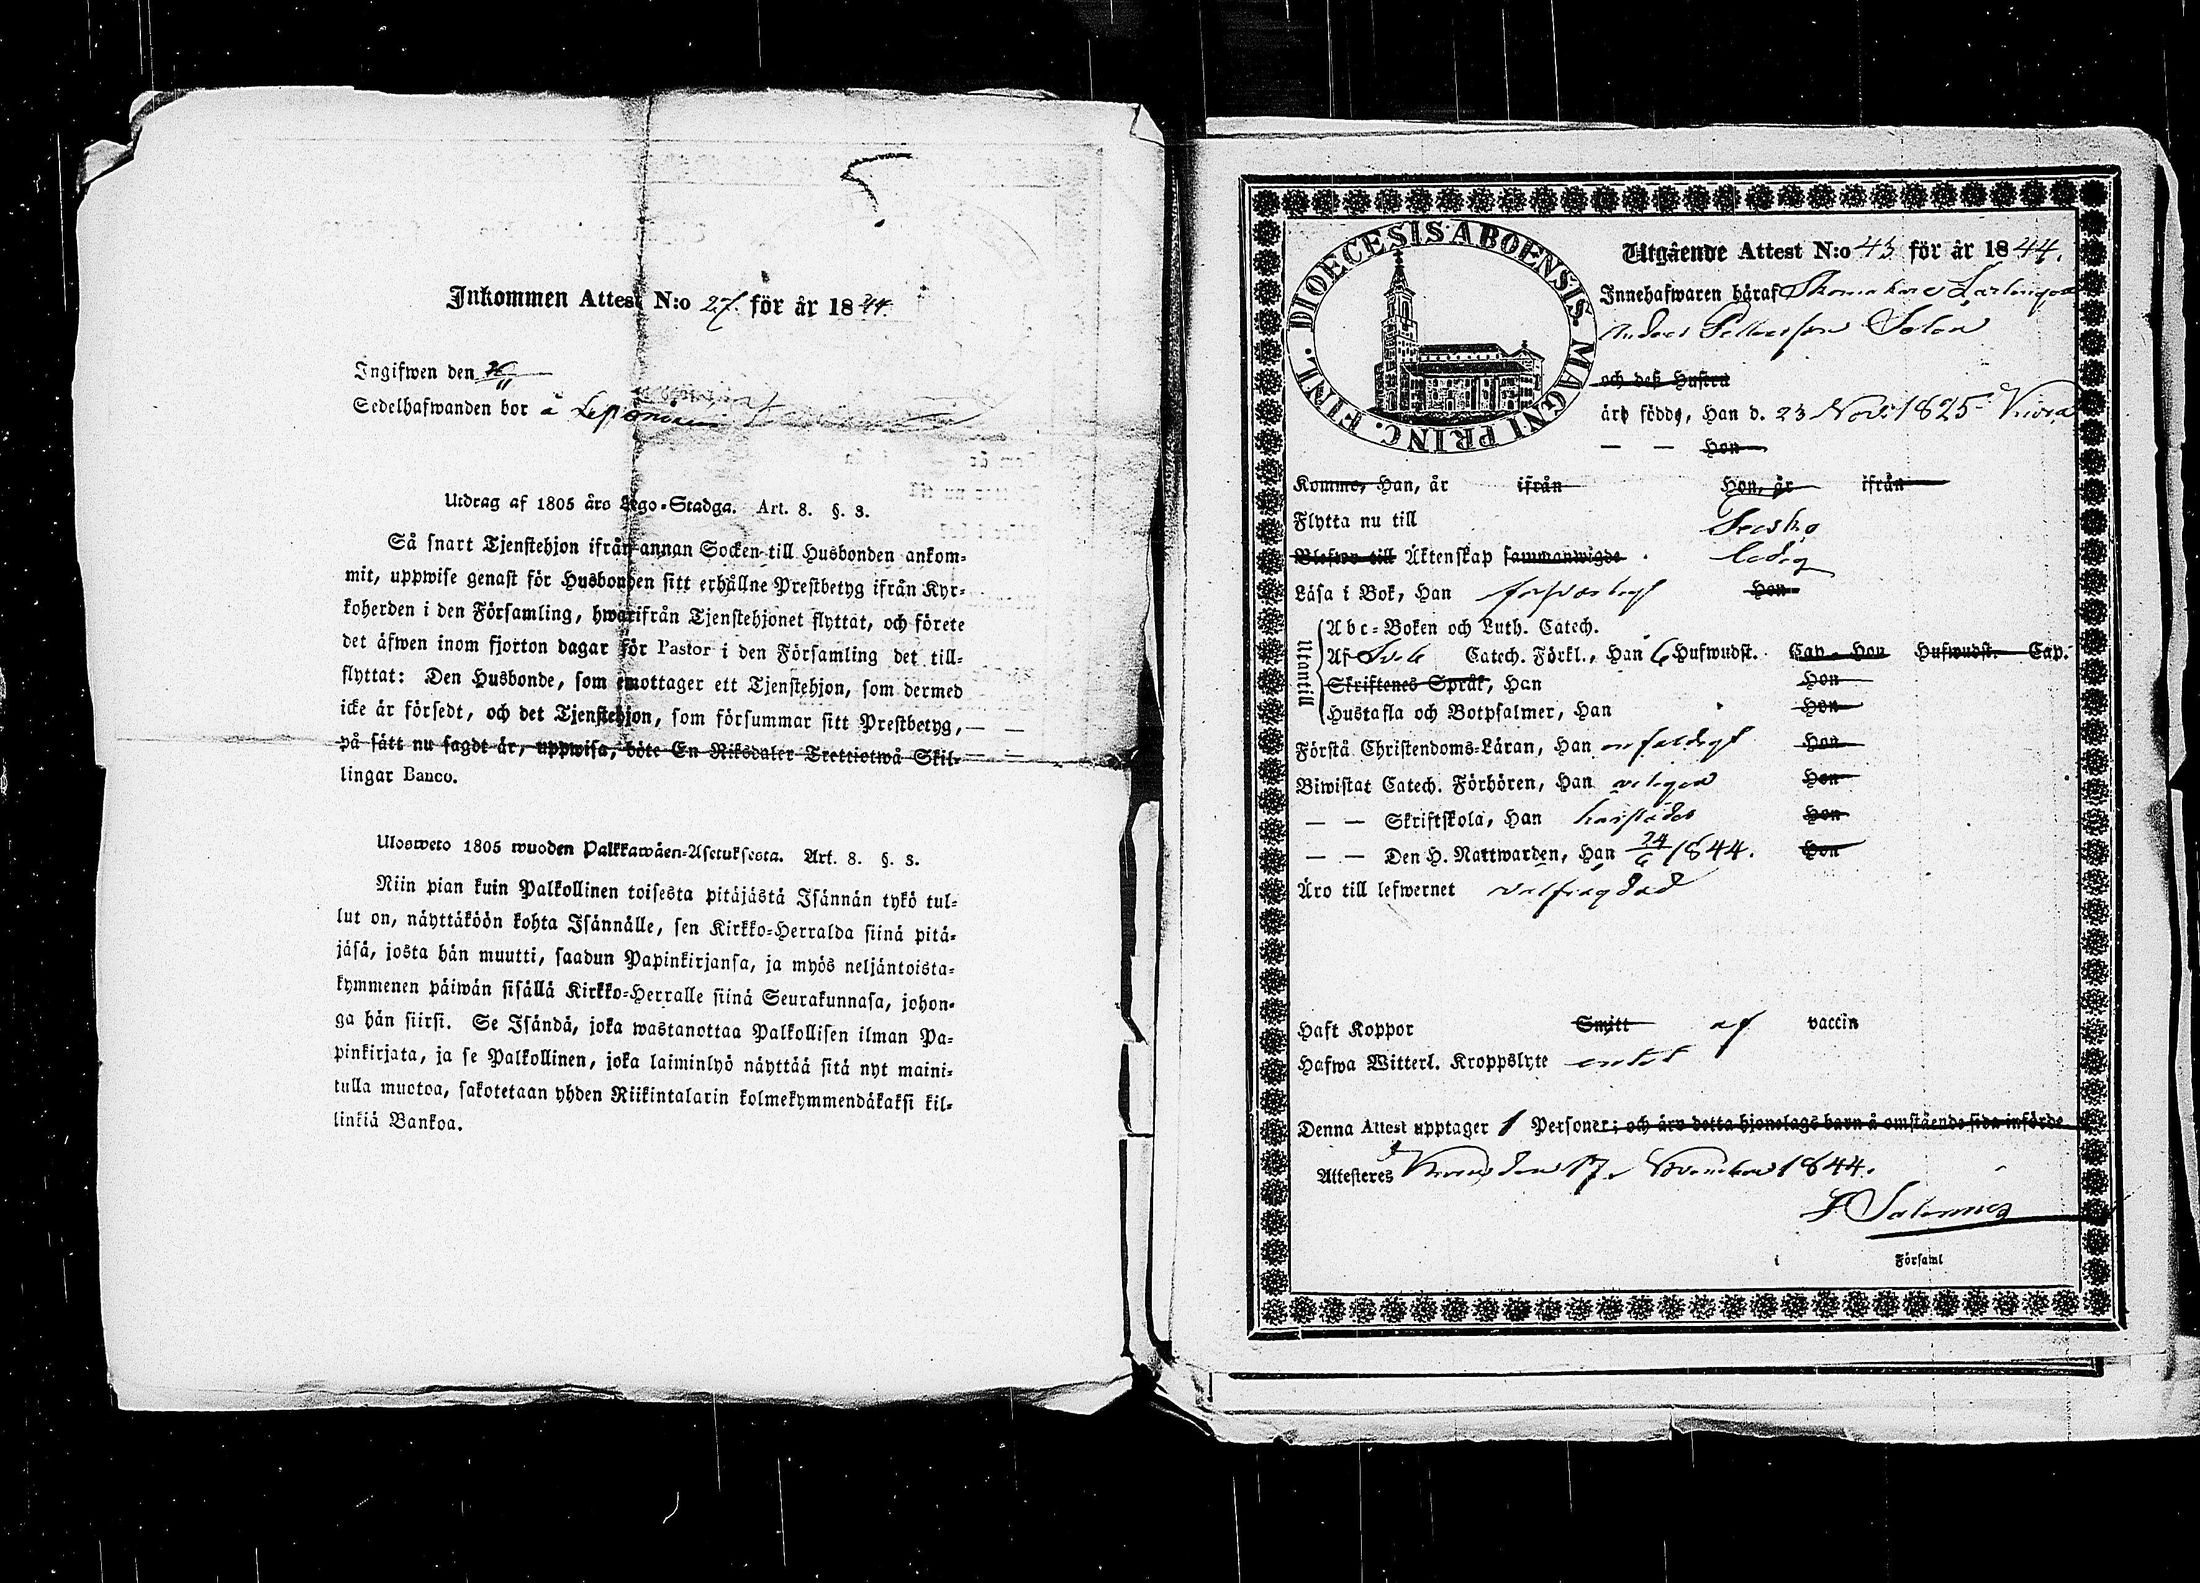 Inkommen Attest N:o 27. för år 1844.
Ingifwen den
Sedelhafwanden bor å
Utdrag af 1805 års Lego-Stadga. Art. 8. §. 3.
Så snart Tjenstehjon ifrån annan Socken till Husbonden ankom-
mit, uppwise genast för Husbonden sitt erhållne Prestbetyg ifrån Kyr-
koherden i den Församling, hwarifrån Tjenstehjonet flyttat, och förete
det äfwen inom fjorton dagar för Pastor i den Församling det till-
flyttat: Den Husbonde, som emottager ett Tjenstehjon, som dermed
icke är försedt, och det Tjenstehjon, som försummar sitt Prestbetyg,
på sätt nu sagdt är, uppwisa, böte En Riksdaler Trettiotwå Skil-
lingar Banco.
Ulosweto 1805 wuoden Palkkawäen-Asetuksesta. Art. 8. §. 3.
Niin pian kuin Palkollinen toisesta pitäjästä Isännän tykö tul-
lut on, näyttäköön kohta Isännälle, sen Kirkko-Herralda siinä pitä-
jäsä, josta hän muutti, saadun Papinkirjansa, ja myös neljäntoista-
kymmenen päiwän sisällä Kirkko-Herralle siinä Seurakunnasa, johon-
ga hän siirsi. Se Isändä, joka wastanottaa Palkollisen ilman Pa-
pinkirjata, ja se Palkollinen, joka laiminlyö näyttää sitä nyt maini-
tulla muotoa, sakotetaan yhden Riikintalarin kolmekymmendäkaksi kil-
linkiä Bankoa.
DIOECESIS ABOENSIS. MAGNI PRINC. FINL.
Utgående Attest N:o 43 för år 1844.
Innehafwaren häraf Skomakare Lärlingen
Anders Pettersson Solen
och deß Hustru
äro födde, Han d. 23 Nov. 1825 i
— — Hon
Komme, Han, år ifrån Hon, år ifrån
Flytta nu till
Blefwo till Äktenskap sammanwigde ledig
Läsa i Bok, Han försvarligt Hon
Utantill
Abc-Boken och Luth. Catech.
Af Catech. Förkl., Han 6 Hufwudst. Cap. Hon Hufwudst. Cap.
Skriftenes Språk, Han Hon
Hustafla och Botpsalmer, Han Hon
Förstå Christendoms-Läran, Han enfaldigt Hon
Biwistat Catech. Förhören, Han Hon
— — Skriftskola, Han Hon
— — Den H. Nattwarden, Han 24/6 1844. Hon
Äro till lefwernet välfrägdad
Haft Koppor Smitt af vaccin
Hafwa Witterl. Kroppslyte intet
Denna Attest upptager 1 Personer; och äro detta hjonelags barn å omstående sida införde
Attesteres den 17 November 1844.
i Församl